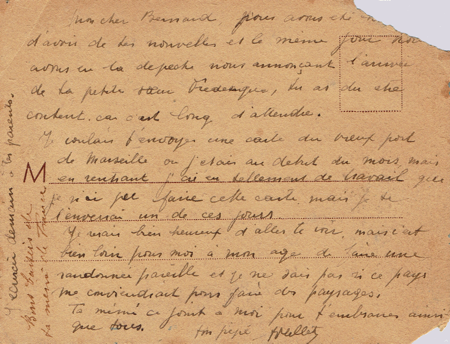 mon cher Bernard, nous avons été
d'avoir de tes nouvelles et le meme jour nous
avons eu la depeche nous annonçant l'arrivée
de la petite sœur tu as du etre
content. car c'est long d'attendre.
Je voulais t'envoyer une carte du vieux port
de Marseille ou j'etais au debut du mois, mais
en rentrant j'ai eu tellement de travail que
je n'ai pu faire cette carte mais je te
l'enverrai un de ces jours.
Je serais bien heureux d'aller te voir, mais c'est
bien loin pour moi à mon age de faire une
randonnée pareille et je ne sais pas si ce pays
me conviendrait pour faire des paysages.
Ta meme se joint à moi pour t'embrasser ainsi
que tous. ton pepé
J'ecrirai demain à tes parents.
Bons baisers de
ta mémé
M